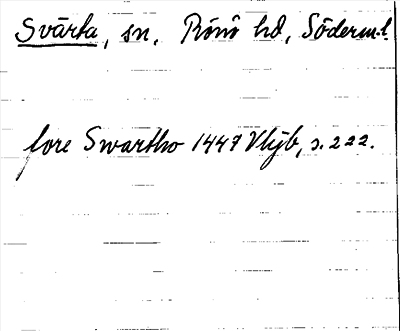 Svärta, sn, Rönö hd, Söderm.l.
fore Swartho 1447 Vhjb, s. 222.